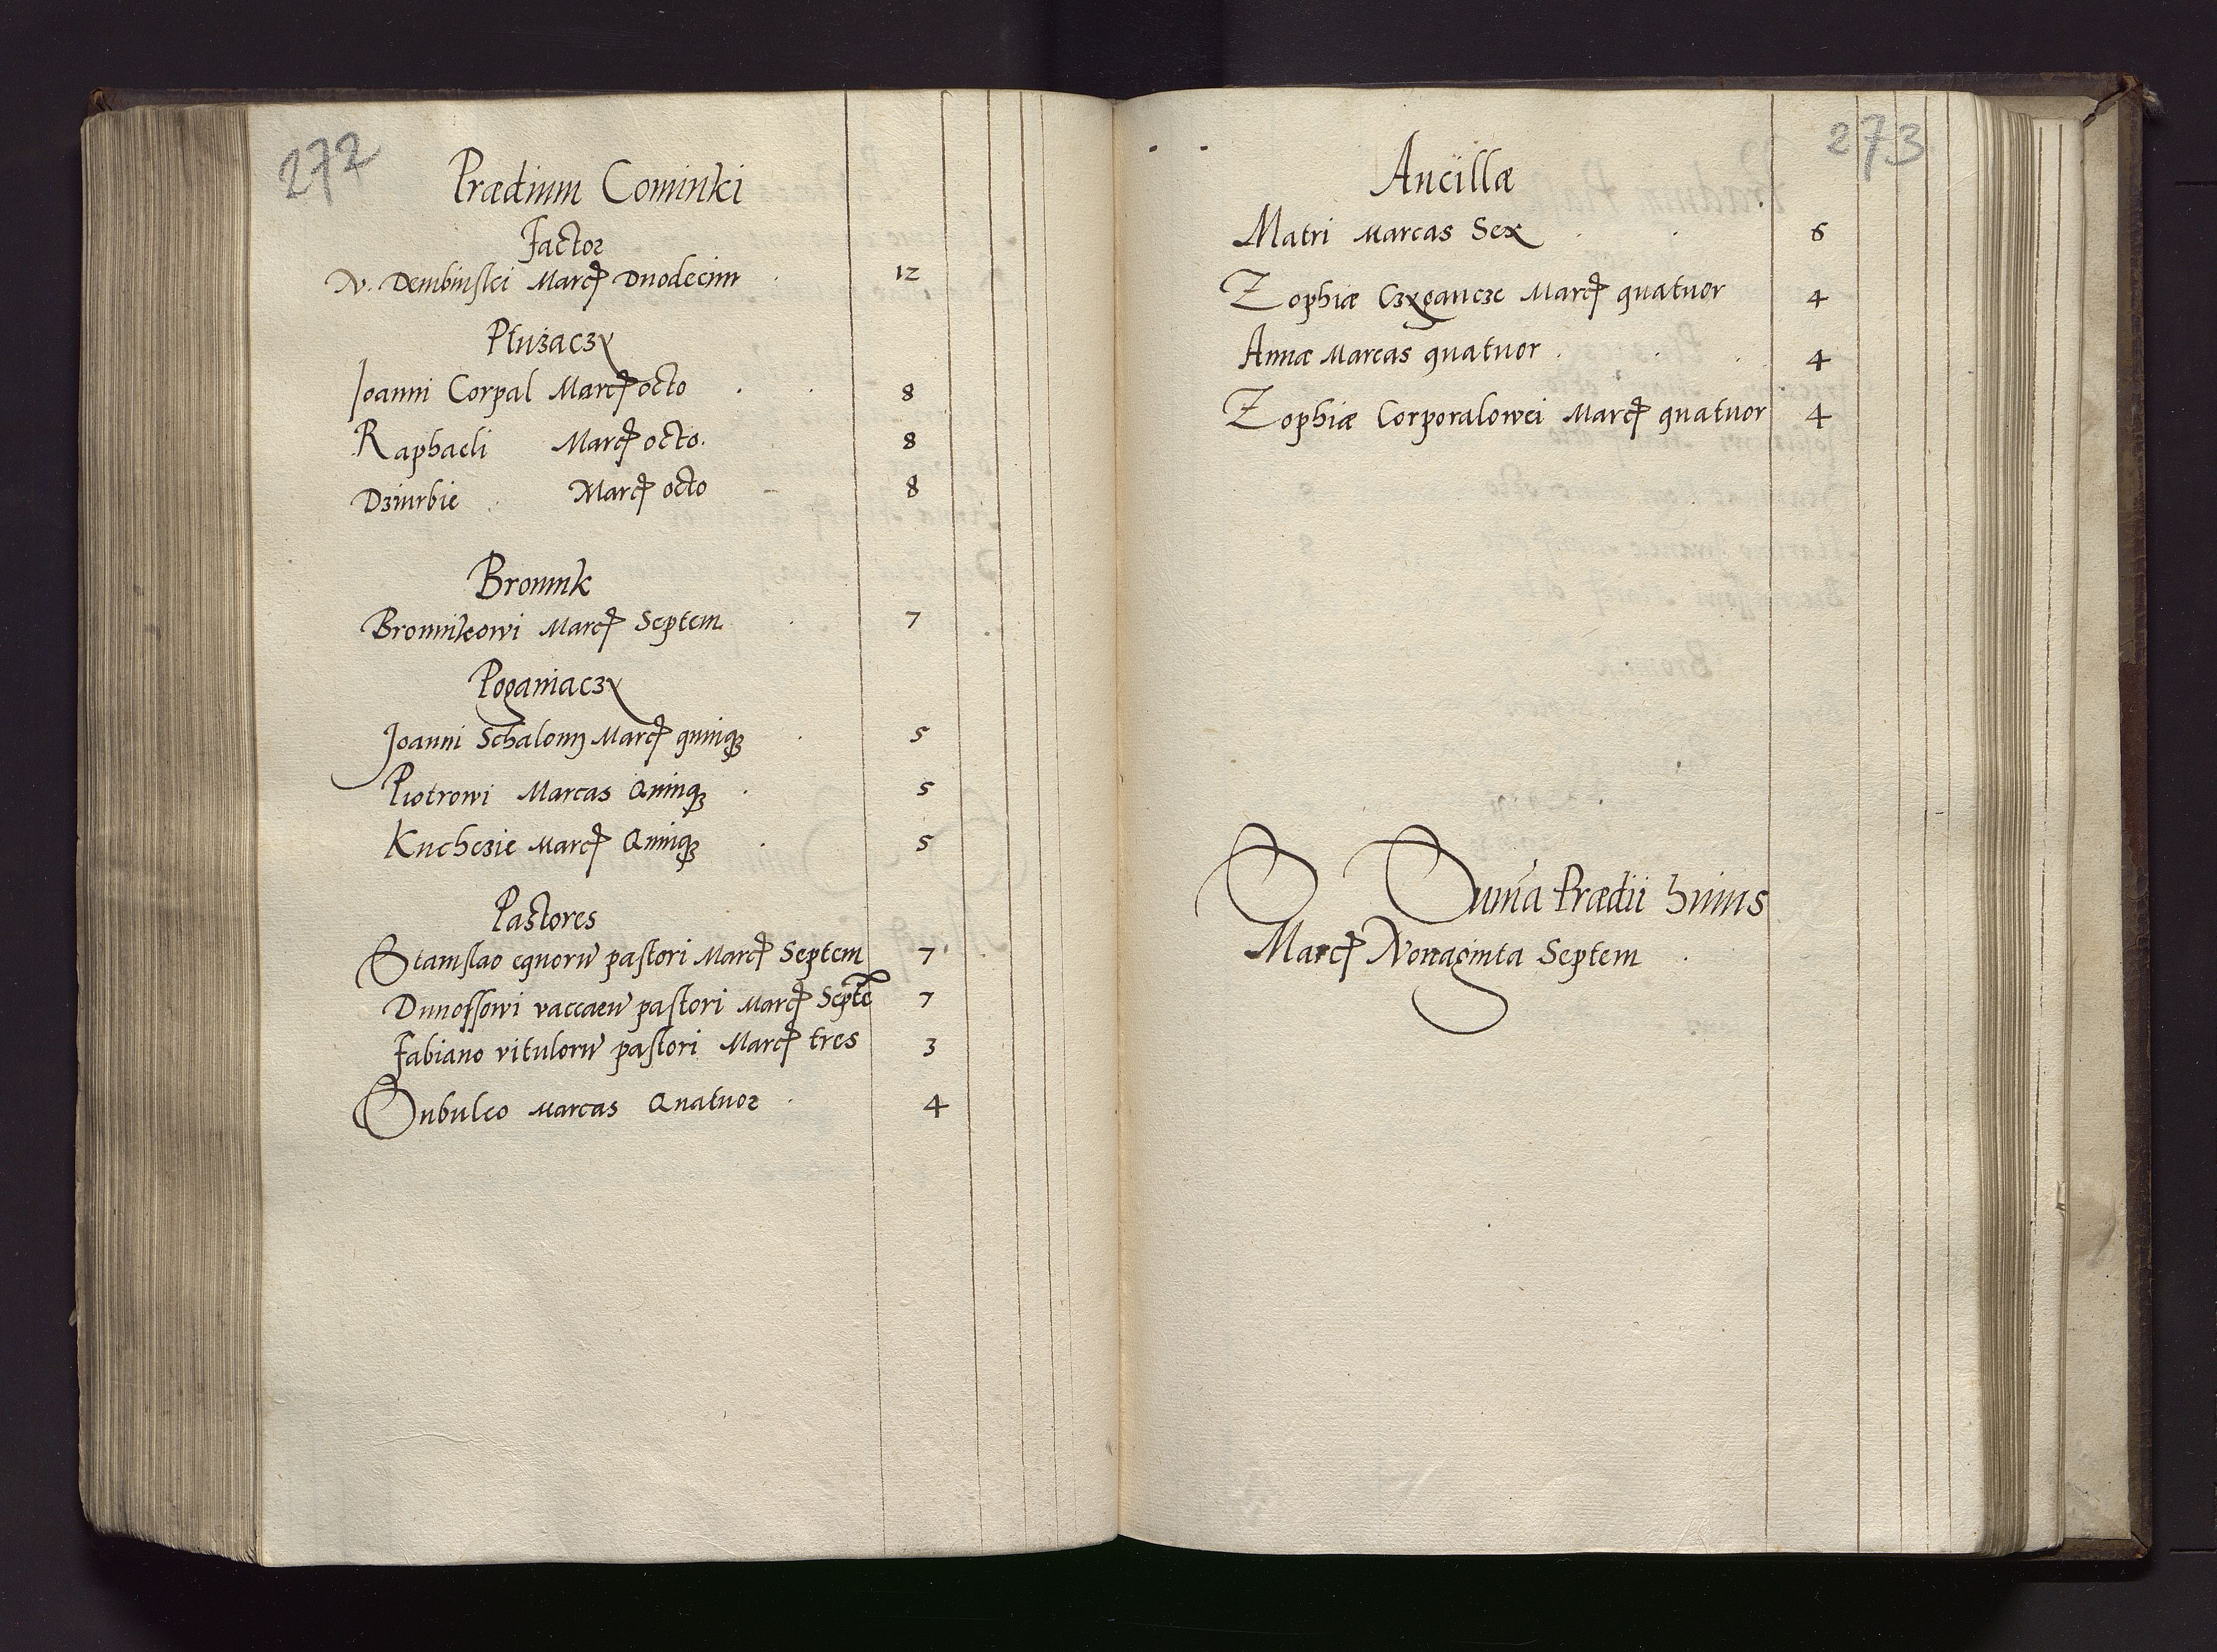 272
Prædium Cominki
Factor
N. Dembinski Marcꝭ Duodecim 12
Płużaczÿ
Joanni Corpal Marcꝭ octo 8
Raphaeli Marcꝭ octo. 8
Dziurbie Marcꝭ octo 8
Bronnik
Bronnikowi Marcꝭ Septem 7
Poganiaczy
Joanni Schalony Marcꝭ quinqꝫ 5
Piotrowi Marcas Quinqꝫ 5
Kuchczie Marcꝭ Quinqꝫ 5
Pastores
Stanislao equorũ pastori Marcꝭ Septem 7
Dunossowi vaccarũ pastori Marcꝭ Septẽ 7
Fabiano vitulorũ pastori Marcꝭ tres 3
Subulco Marcas Quatuor 4
273
Ancillæ
Matri Marcas Sex 6
Zophiæ Czygancze Marcꝭ quatuor 4
Annæ Marcas quatuor 4
Zophiæ Corporalowei Marcꝭ quatuor 4
Sum̃a Prædii huius
Marcꝭ Nonaginta Septem